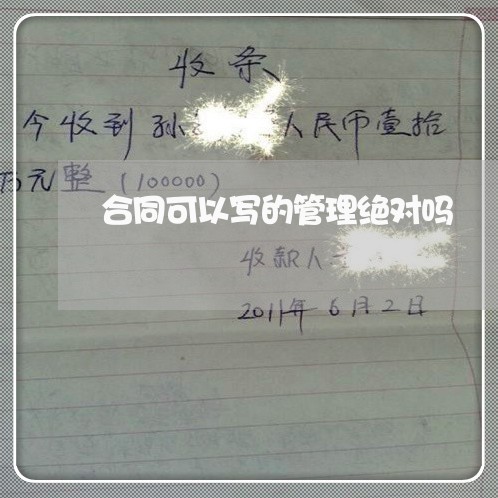 收条
今收到孙 人民币壹拾
万元整（100000）
合同可以写的管理绝对吗
收款人
2011年6月2日